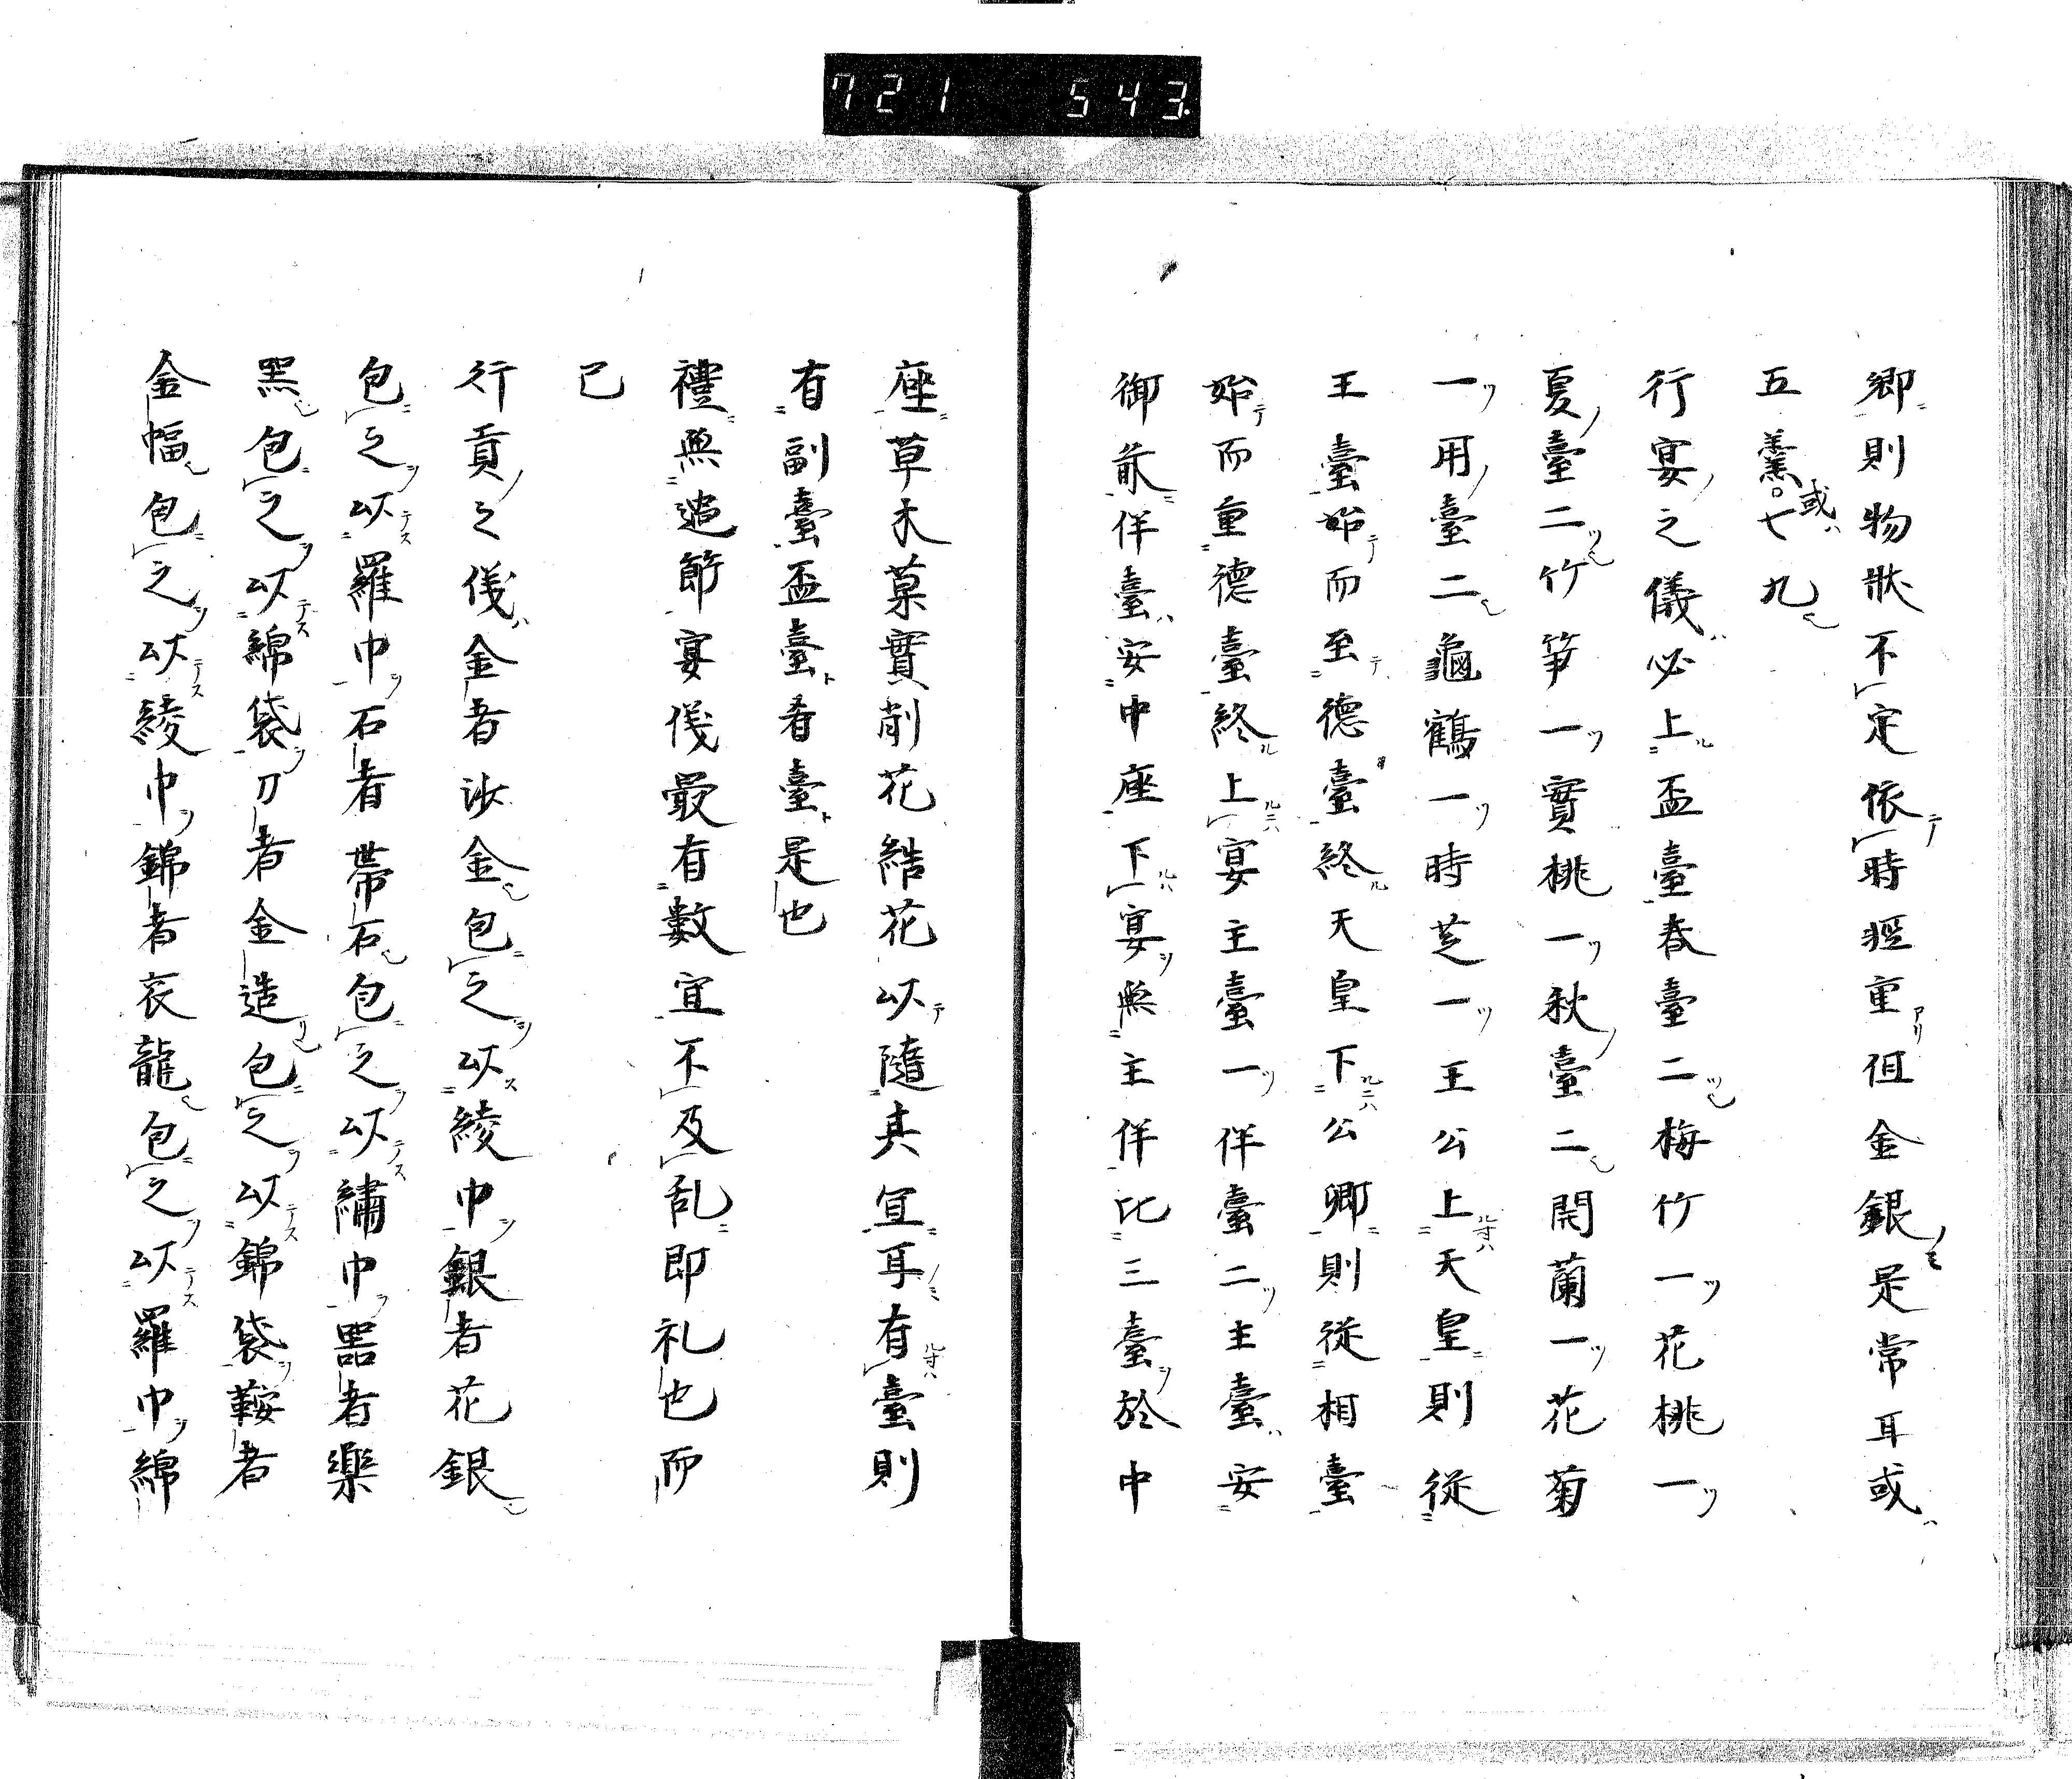 721 543
卿則物状不定依時軽重但金銀是常耳或
五羹或七九
行宴之儀必上盃臺春臺二梅竹一花桃一
夏臺二竹笋一實桃一秋臺二開蘭一花菊
一用臺二龜鶴一時芝一王公上天皇則従
王臺始而至徳臺終天皇下公卿則従相臺
始而重徳臺終上宴主臺一伴臺二主臺安
御前伴臺安中座下宴無主伴比三臺於中
座草木菓實削花結花以隨其宜耳有臺則
有副臺盃臺肴臺是也
禮無過節宴儀最有數宜不及乱即礼也而
已
行貢之儀金者沙金包之以綾巾銀者花銀
包之以羅巾石者帯石包之以繡巾器者樂
黑包之以綿袋刀者金造包之以錦袋鞍者
金幅包之以綾巾錦者衣龍包之以羅巾綿